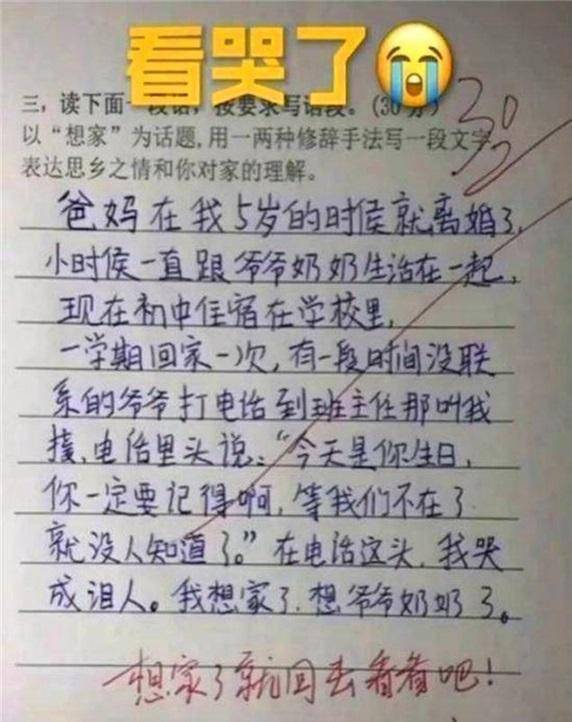 看哭了😭
三，读下面一段话，按要求写话段。(30分)
30
以“想家”为话题,用一两种修辞手法写一段文字
表达思乡之情和你对家的理解。
爸妈在我5岁的时候就离婚了,
小时候一直跟爷爷奶奶生活在一起,
现在初中住宿在学校里,
一学期回家一次,有一段时间没联
系的爷爷打电话到班主任那叫我
接,电话里头说:“今天是你生日,
你一定要记得啊,等我们不在了
就没人知道了。”在电话这头,我哭
成泪人。我想家了,想爷爷奶奶了。
想家了就回去看看吧!